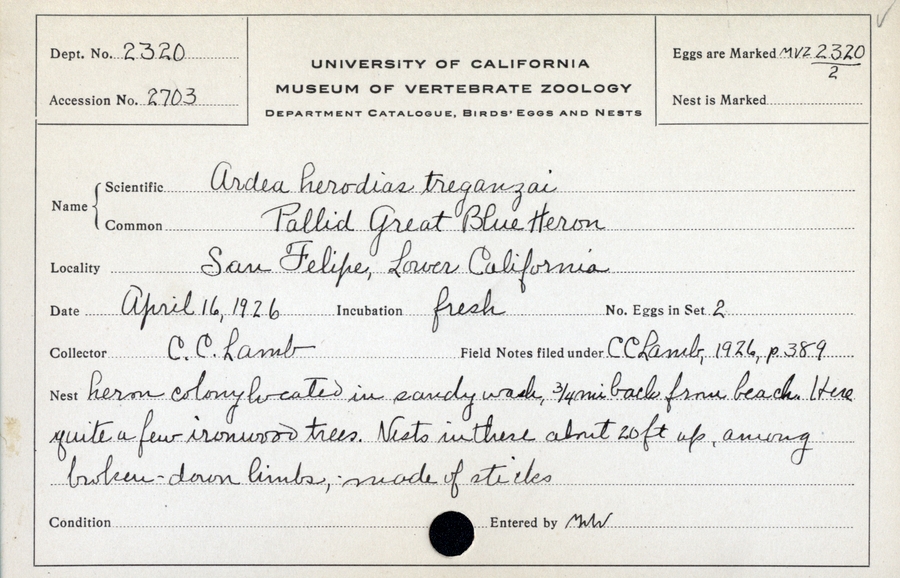 Dept. No. 2320
Accession No. 2703
UNIVERSITY OF CALIFORNIA
MUSEUM OF VERTEBRATE ZOOLOGY
DEPARTMENT CATALOGUE, BIRDS' EGGS AND NESTS
Eggs are Marked MVZ 2320/2
Nest is Marked
Name
Scientific Ardea herodias treganzai
Common Pallid Great Blue Heron
Locality San Felipe, Lower California
Date April 16, 1926 Incubation fresh No. Eggs in Set 2
Collector C. C. Lamb Field Notes filed under CCLamb, 1926, p. 389
Nest heron colony located in sandy wash, 3/4 mi back from beach. Here
quite a few ironwood trees. Nests in these about 20 ft up, among
broken-down limbs, - made of sticks
Condition Entered by MW